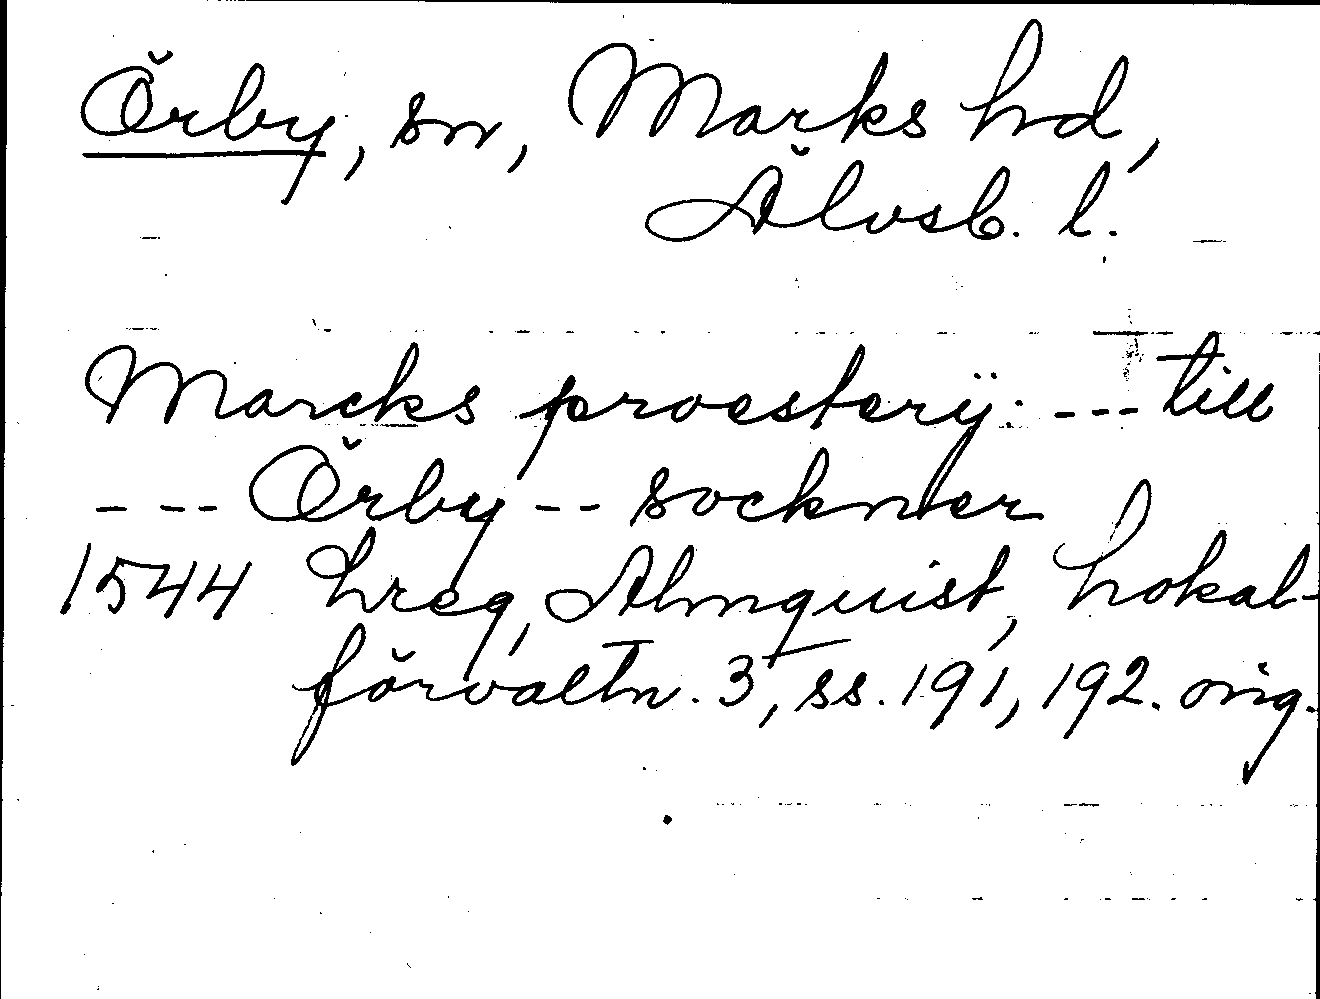 Örby, sn, Marks hd,
Älvsb. l.
Marcks proesterÿ: --- till
--- Örby -- sockner
1544 Lreg, Almquist, Lokal-
förvaltn. 3, ss. 191, 192. orig.